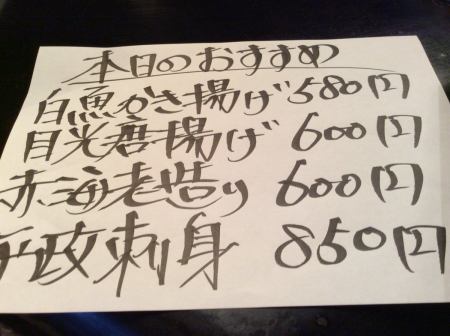 本日のおすすめ
白魚かき揚げ 580円
目光唐揚げ 600円
赤海老造り 600円
政刺身 850円